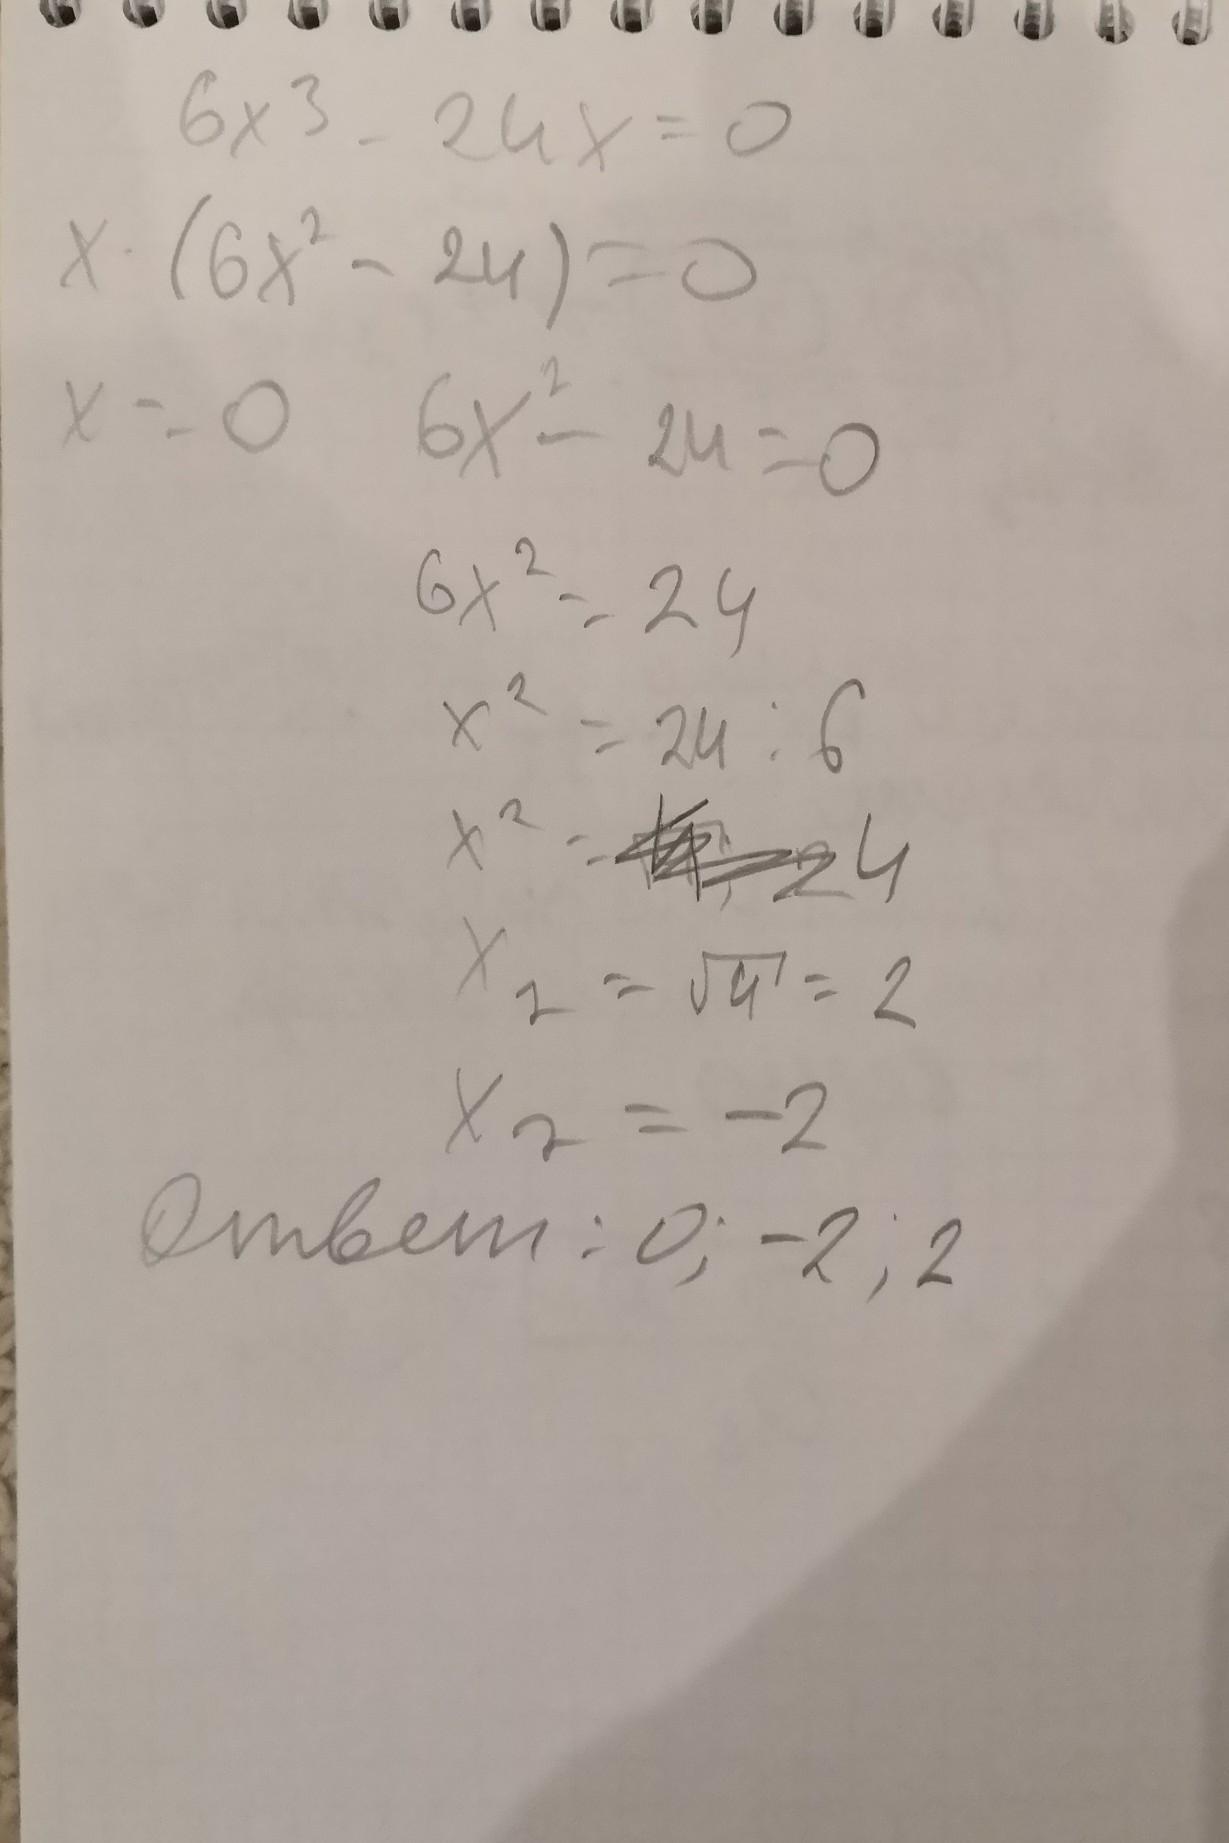 6x³ - 24x = 0
x · (6x² - 24) = 0
x = 0 6x² - 24 = 0
6x² = 24
x² = 24 : 6
x² = 4
x₂ = √4 = 2
x₂ = -2
Ответ: 0; -2; 2